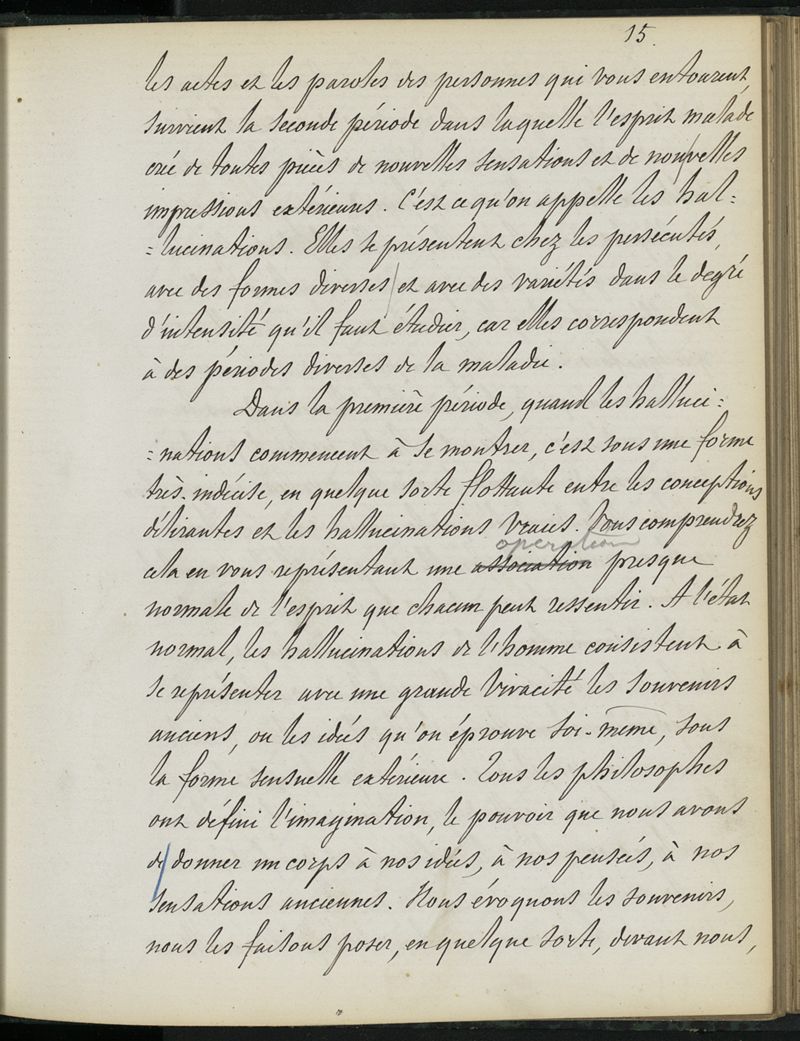 15.
les actes et les paroles des personnes qui vous entourent,
survient la seconde période dans laquelle l'esprit malade
crée de toutes pièces de nouvelles sensations et de nouvelles
impressions extérieures. C'est ce qu'on appelle les hal=
=lucinations. Elles se présentent chez les persécutés,
avec des formes diverses et avec des variétés dans le degré
d'intensité qu'il faut étudier, car elles correspondent
à des périodes diverses de la maladie.
Dans la première période, quand les halluci=
=nations commencent à se montrer, c'est sous une forme
très-indécise, en quelque sorte flottante entre les conceptions
délirantes et les hallucinations vraies. Vous comprendrez
operation
cela en vous représentant une association presque
normale de l'esprit que chacun peut ressentir. A l'état
normal, les hallucinations de l'homme consistent à
se représenter avec une grande vivacité les souvenirs
anciens, ou les idées qu'on éprouve soi-même, sous
la forme sensuelle extérieure. Tous les philosophes
ont défini l'imagination, le pouvoir que nous avons
de donner un corps à nos idées, à nos pensées, à nos
sensations anciennes. Nous évoquons les souvenirs,
nous les faisons poser, en quelque sorte, devant nous,